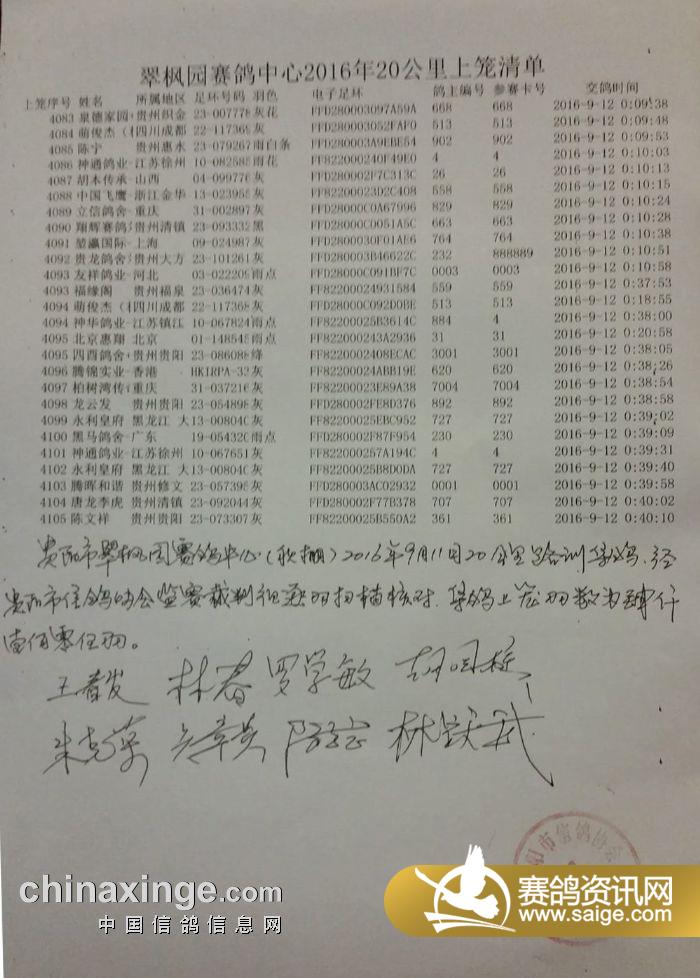 翠枫园赛鸽中心2016年20公里上笼清单
上笼序号 姓名 所属地区 足环号码 羽色 电子足环 鸽主编号 参赛卡号 交鸽时间
4083 泉德家园 贵州织金 23-007778 灰花 FFD280003097A59A 668 668 2016-9-12 0:09:38
4084 萌俊杰（ 四川成都 22-117369 灰 FFD280003052FAF0 513 513 2016-9-12 0:09:48
4085 陈宁 贵州惠水 23-079267 雨白条 FFD280003A9EBE54 902 902 2016-9-12 0:09:53
4086 神通鸽业 江苏徐州 10-082585 雨花 FF822000240F49E0 4 4 2016-9-12 0:10:03
4087 胡本传承 山西 04-099776 灰 FFD280002F7C313C 26 26 2016-9-12 0:10:13
4088 中国飞鹰 浙江金华 13-023955 灰 FF82200023D2C408 558 558 2016-9-12 0:10:15
4089 立信鸽舍 重庆 31-002897 灰 FFD28000C0A67996 829 829 2016-9-12 0:10:24
4090 翔辉赛鸽 贵州清镇 23-093332 黑 FFD28000CD051A5C 663 663 2016-9-12 0:10:28
4091 堃瀛国际 上海 09-024987 灰 FFD280030F01AE6 764 764 2016-9-12 0:10:38
4092 贵龙鸽舍 贵州大方 23-101261 灰 FFD280003B46622C 232 888889 2016-9-12 0:10:51
4093 友祥鸽业 河北 03-022209 雨点 FFD28000C091BF7C 0003 0003 2016-9-12 0:10:58
4093 福缘阁 贵州福泉 23-036474 灰 FF82200024931584 559 559 2016-9-12 0:37:53
4094 萌俊杰（ 四川成都 22-117368 灰 FFD28000C092D0BE 513 513 2016-9-12 0:18:55
4094 神华鸽业 江苏镇江 10-067824 雨点 FF82200025B3614C 884 4 2016-9-12 0:38:00
4095 北京惠翔 北京 01-148545 雨点 FF822000243A2936 31 31 2016-9-12 0:20:58
4095 四酉鸽舍 贵州贵阳 23-086088 绛 FF8220002408ECAC 3001 3001 2016-9-12 0:38:05
4096 腾锦实业 香港 HKIRPA-32 灰 FF82200024ABB19E 620 620 2016-9-12 0:38:26
4097 柏树湾传 重庆 31-037216 灰 FF82200023E89A38 7004 7004 2016-9-12 0:38:54
4098 龙云发 贵州贵阳 23-054898 灰 FFD280002FE8D376 892 892 2016-9-12 0:38:58
4099 永利皇府 黑龙江 大 13-00804C 灰 FF82200025EBC952 727 727 2016-9-12 0:39:02
4100 黑马鸽舍 广东 19-05432C 雨点 FFD280002F87F954 230 230 2016-9-12 0:39:09
4101 神通鸽业 江苏徐州 10-067651 灰 FF822000257A194C 4 4 2016-9-12 0:39:31
4102 永利皇府 黑龙江 大 13-00804C 灰 FF82200025B8D0DA 727 727 2016-9-12 0:39:40
4103 腾晖和谐 贵州修文 23-057395 灰 FFD280003AC02932 0001 0001 2016-9-12 0:39:58
4104 唐龙李虎 贵州清镇 23-092044 灰 FFD280002F77B378 707 707 2016-9-12 0:40:02
4105 陈文祥 贵州贵阳 23-073307 灰 FF82200025B550A2 361 361 2016-9-12 0:40:10
贵阳市翠枫园赛鸽中心（秋棚）2016年9月11日20公里路训集鸽，经
贵阳市信鸽协会监赛裁判组逐羽扫描核对，集鸽上笼羽数为肆仟
壹佰零伍羽。
林春 罗学敏
阳市信鸽协会
chinaxinge.com
中国信鸽信息网
赛鸽资讯网
www.saige.com